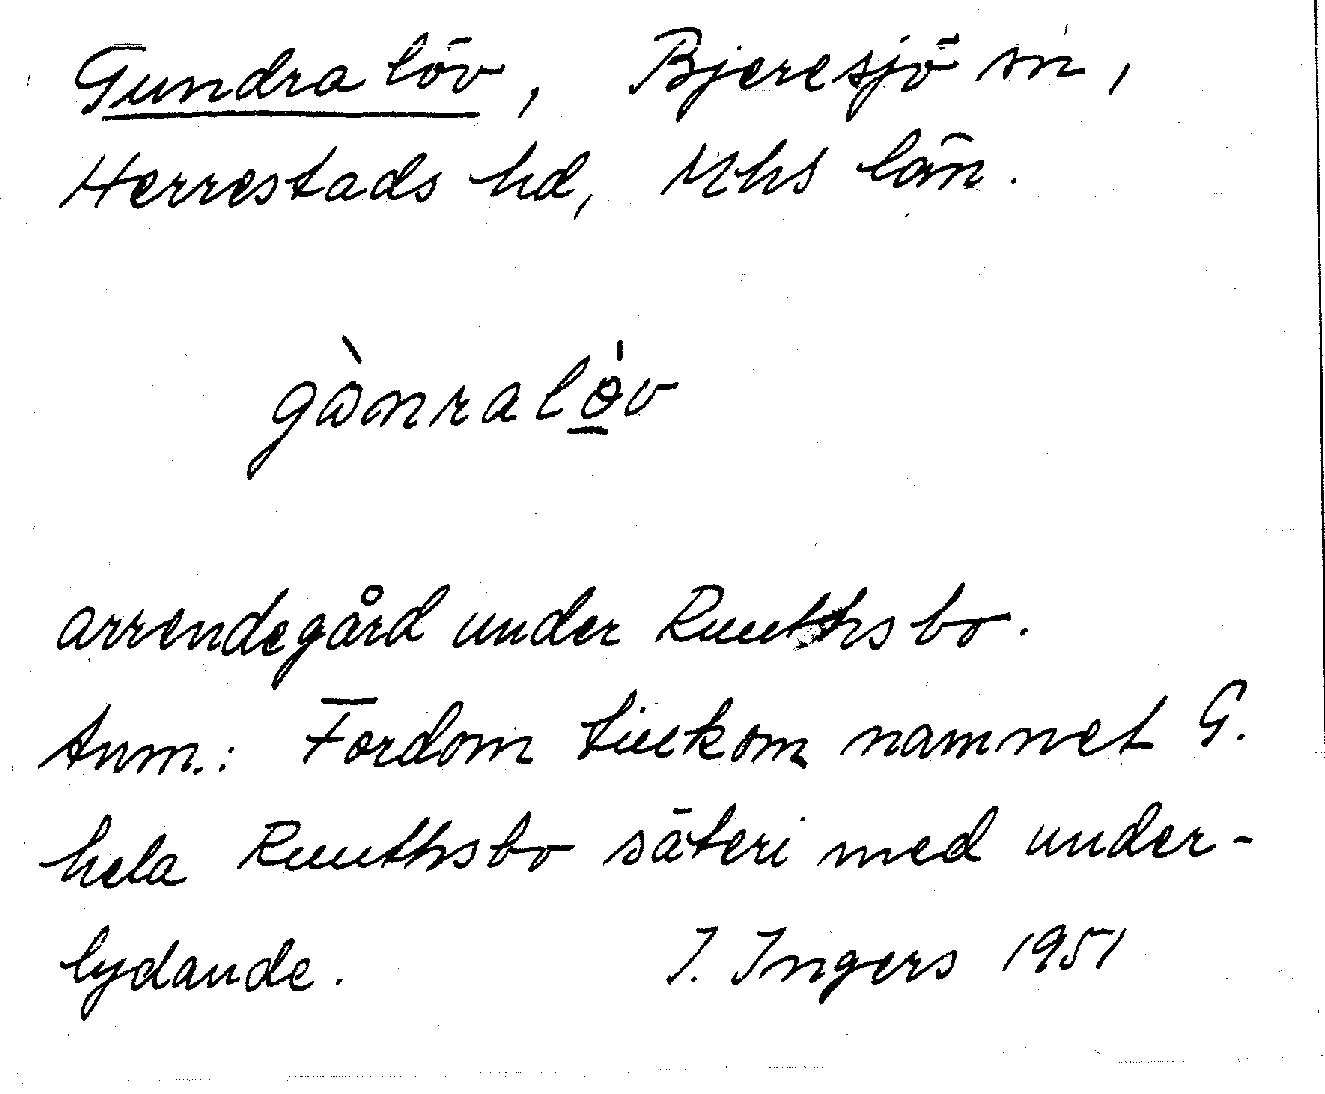 Gundralöv, Bjeresjö sn,
Herrestads hd, Mhs län.
arrendegård under Ruuthsbo.
Anm.: Fordom tillkom namnet G.
hela Ruuthsbo säteri med under-
lydande. I. Ingers 1951